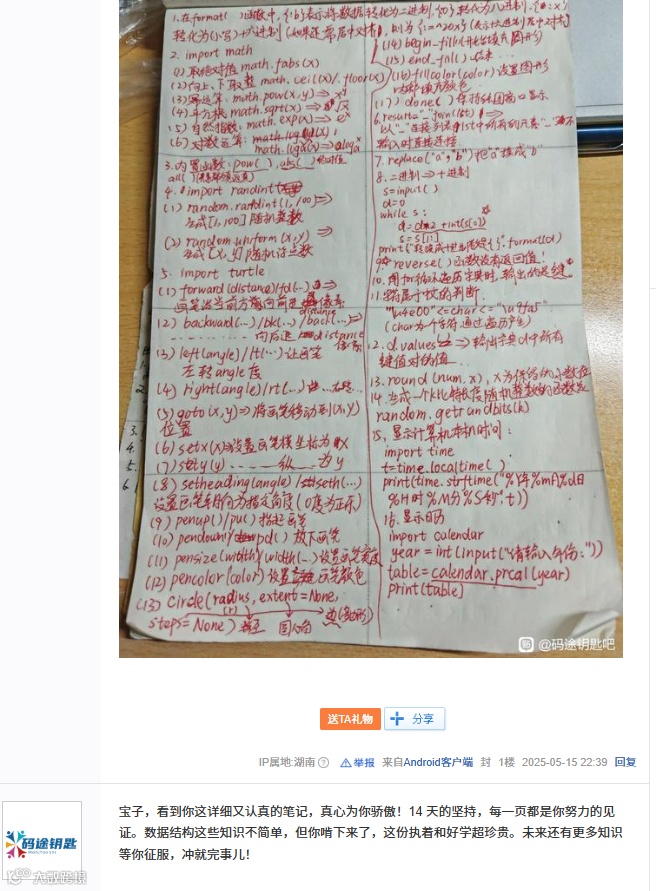 1.在format( )函数中,{:b}表示将数据转化为二进制,{:o}转化为八进制,{:x}
转化为(小写)十六进制
2. import math
(1) 取绝对值 math.fabs(x)
(2) 向上、下取整 math.ceil(x)/.floor(x)
(3) 幂运算:math.pow(x,y) ⇒ x^y
(4) 平方根:math.sqrt(x) ⇒ √x
(5) 自然指数:math.exp(x) ⇒ e^x
(6) 对数运算:
3. 内置函数:pow( ), abs( )
4. import randint
(1) random.randint(1,100) ⇒
生成[1,100]随机整数
(2) random.uniform(x,y) ⇒
生成[x,y]随机浮点数
5. import turtle
(1) forward(distance)/fd(..) ⇒
画笔沿当前方向前进
(2) backward(...)/bk(..)/back(...) ⇒
向后退 distance
(3) left(angle)/lt(...) 让画笔
左转angle度
(4) right(angle)/rt(...)
(5) goto(x,y) ⇒ 将画笔移动到(x,y)
位置
(6) setx(x) 设置画笔横坐标为x
(7) sety(y) ..... 纵 ... 为y
(8) setheading(angle)/seth(...)
设置画笔朝向为指定角度(0度为正东)
(9) penup()/pu() 抬起画笔
(10) pendown()/pd() 放下画笔
(11) pensize(width)/width(..)设置画笔宽度
(12) pencolor(color)设置画笔颜色
(13) circle(radius, extent=None,
steps=None) 半径 圆心角 边(多边形)
(14) begin-fill(开始填充图形)
(15) end_fill() 结束...
(16) fillcolor(color) 设置图形
内部填充颜色
(17) done() 保持绘图窗口显示
6. result="-".join(list) ⇒
7. replace("a","b") 把"a"换成"b"
8. 二进制 → 十进制
s=input( )
d=0
while s :
d=d*2+int(s[0])
s=s[1:]
print("转换成十进制数是{}".format(d)
9. reverse()函数没有返回值!
10. 用for循环遍历字典时,输出的是键
11. 是否属于中文的判断.
"\u4e00"<=char<="\u9fa5"
(char为个字符,通过遍历产生)
12. d.values ⇒ 输出字典d中所有
键值对的值
13. round(num,x), x为保留的小数位
14. 生成一个k比特长度随机整数的函数是
random.getrandbits(k)
15. 显示计算机本机时间:
import time
t=time.localtime( )
print(time.strftime("%Y年%m月%d日
%H时%M分%S秒",t))
16. 显示日历
import calendar
year = int(input("请输入年份:"))
table=calendar.prcal(year)
print(table)
@码途钥匙吧
送TA礼物 分享
IP属地:湖南 举报 来自Android客户端 封 1楼 2025-05-15 22:39 回复
码途钥匙
大数跨境
宝子，看到你这详细又认真的笔记，真心为你骄傲！14 天的坚持，每一页都是你努力的见
证。数据结构这些知识不简单，但你啃下来了，这份执着和好学超珍贵。未来还有更多知识
等你征服，冲就完事儿！